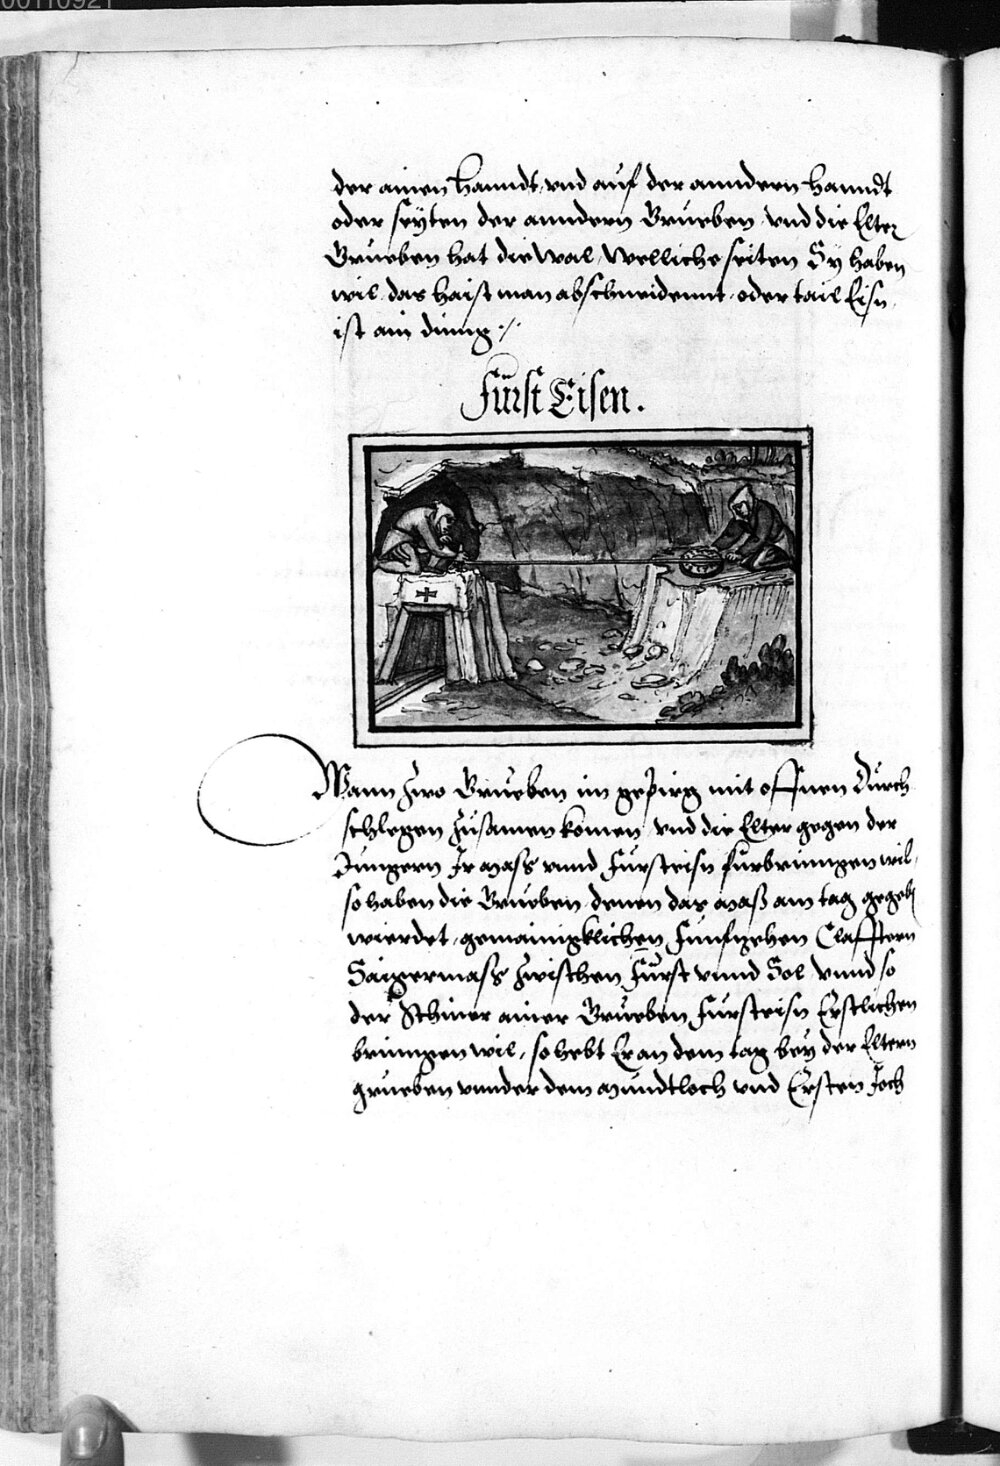 der ainen Hanndt, vnd auf der anndern Hanndt
oder seÿten der anndern Grueben, vnd die Elter
Grueben hat die Wal, Welliche seiten Sy haben
wil, das haist man abschneidennt, oder tail Eisn
ist ain ding ./.
Fürst Eisen.
Wann zwo Grueben im gepirg mit offnen Durch
schlegen zusamen komen, vnd die Elter gegen der
Jungern Ir mass vnnd Fürsteisn fürbringen wil,
so haben die Grueben, denen das mass am tag gegebn
wierdet, gemainigklichen Funfzehen Claffttern
Saigermass zwischen Fürst vnnd Sol, Vnnd so
der Schiner ainer Grueben Fürsteisn Erstlichen
bringen wil, so hebt Er an dem tag bey der Eltern
grueben vnnder dem mundtloch vnd Ersten Joch